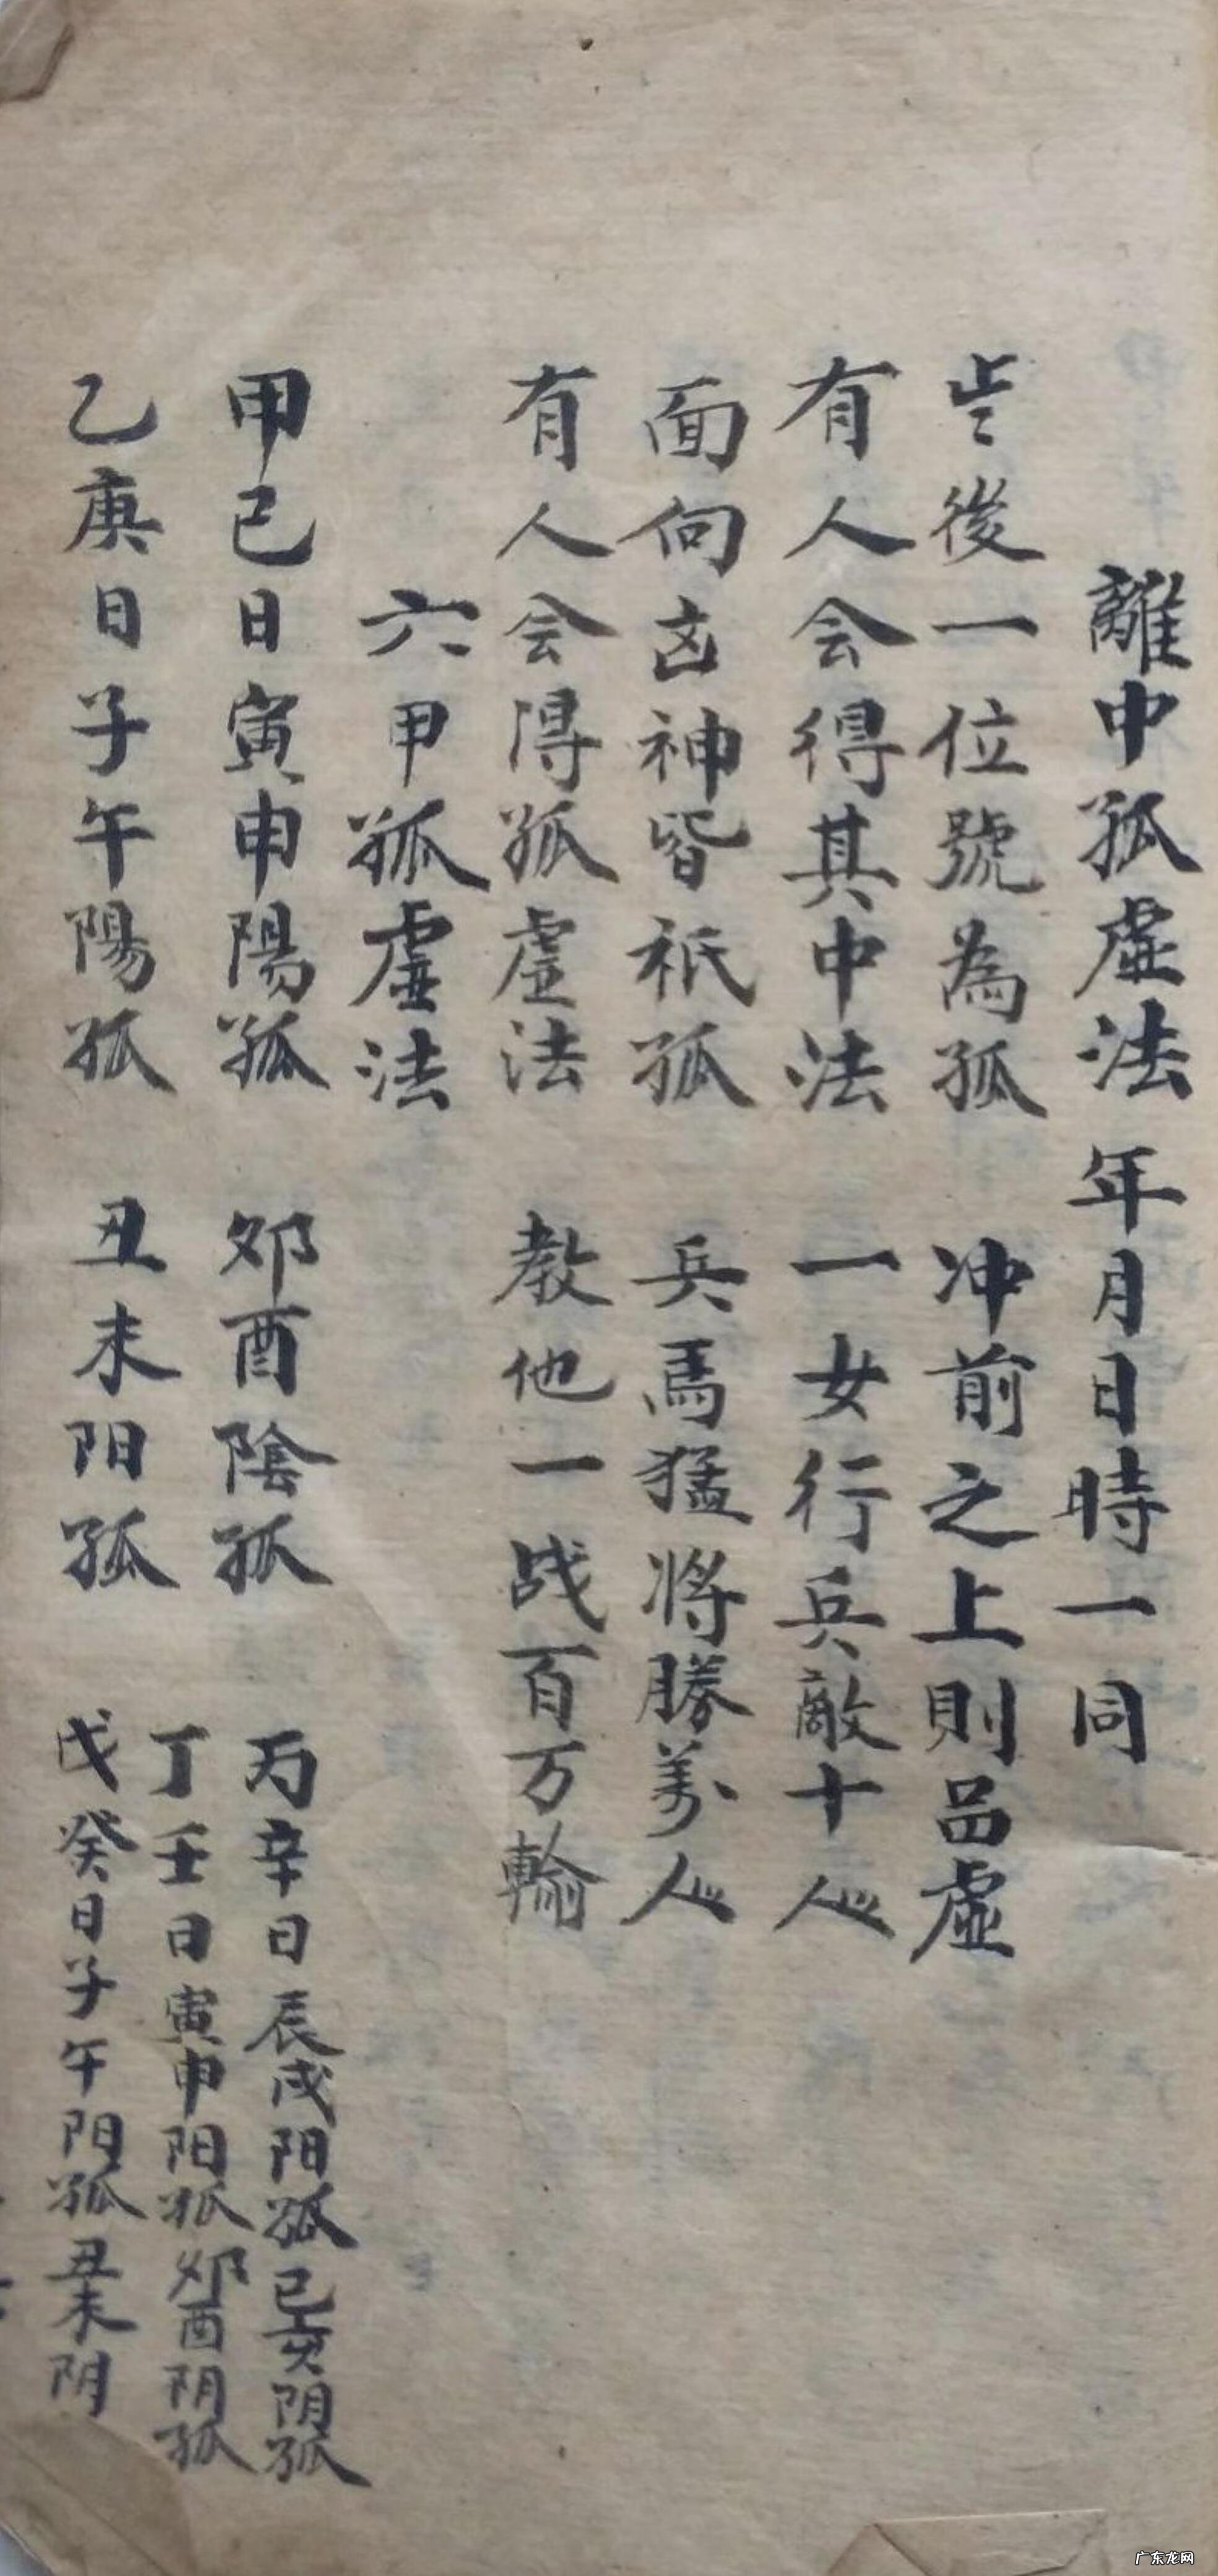 離中孤虛法 年月日時一同
後一位號為孤 冲前之上則品虛
有人会得其中法 一女行兵敵十人
面向凶神皆祇孤 兵馬猛将勝萬人
有人会得孤虛法 教他一战百万輸
六甲孤虛法
甲己日寅申陽孤 卯酉陰孤
丙辛日辰戌阳孤 巳亥阴孤
丁壬日寅申阳孤 卯酉阴孤
乙庚日子午陽孤 丑未阳孤
戊癸日子午阳孤 丑未阴
广东龙网